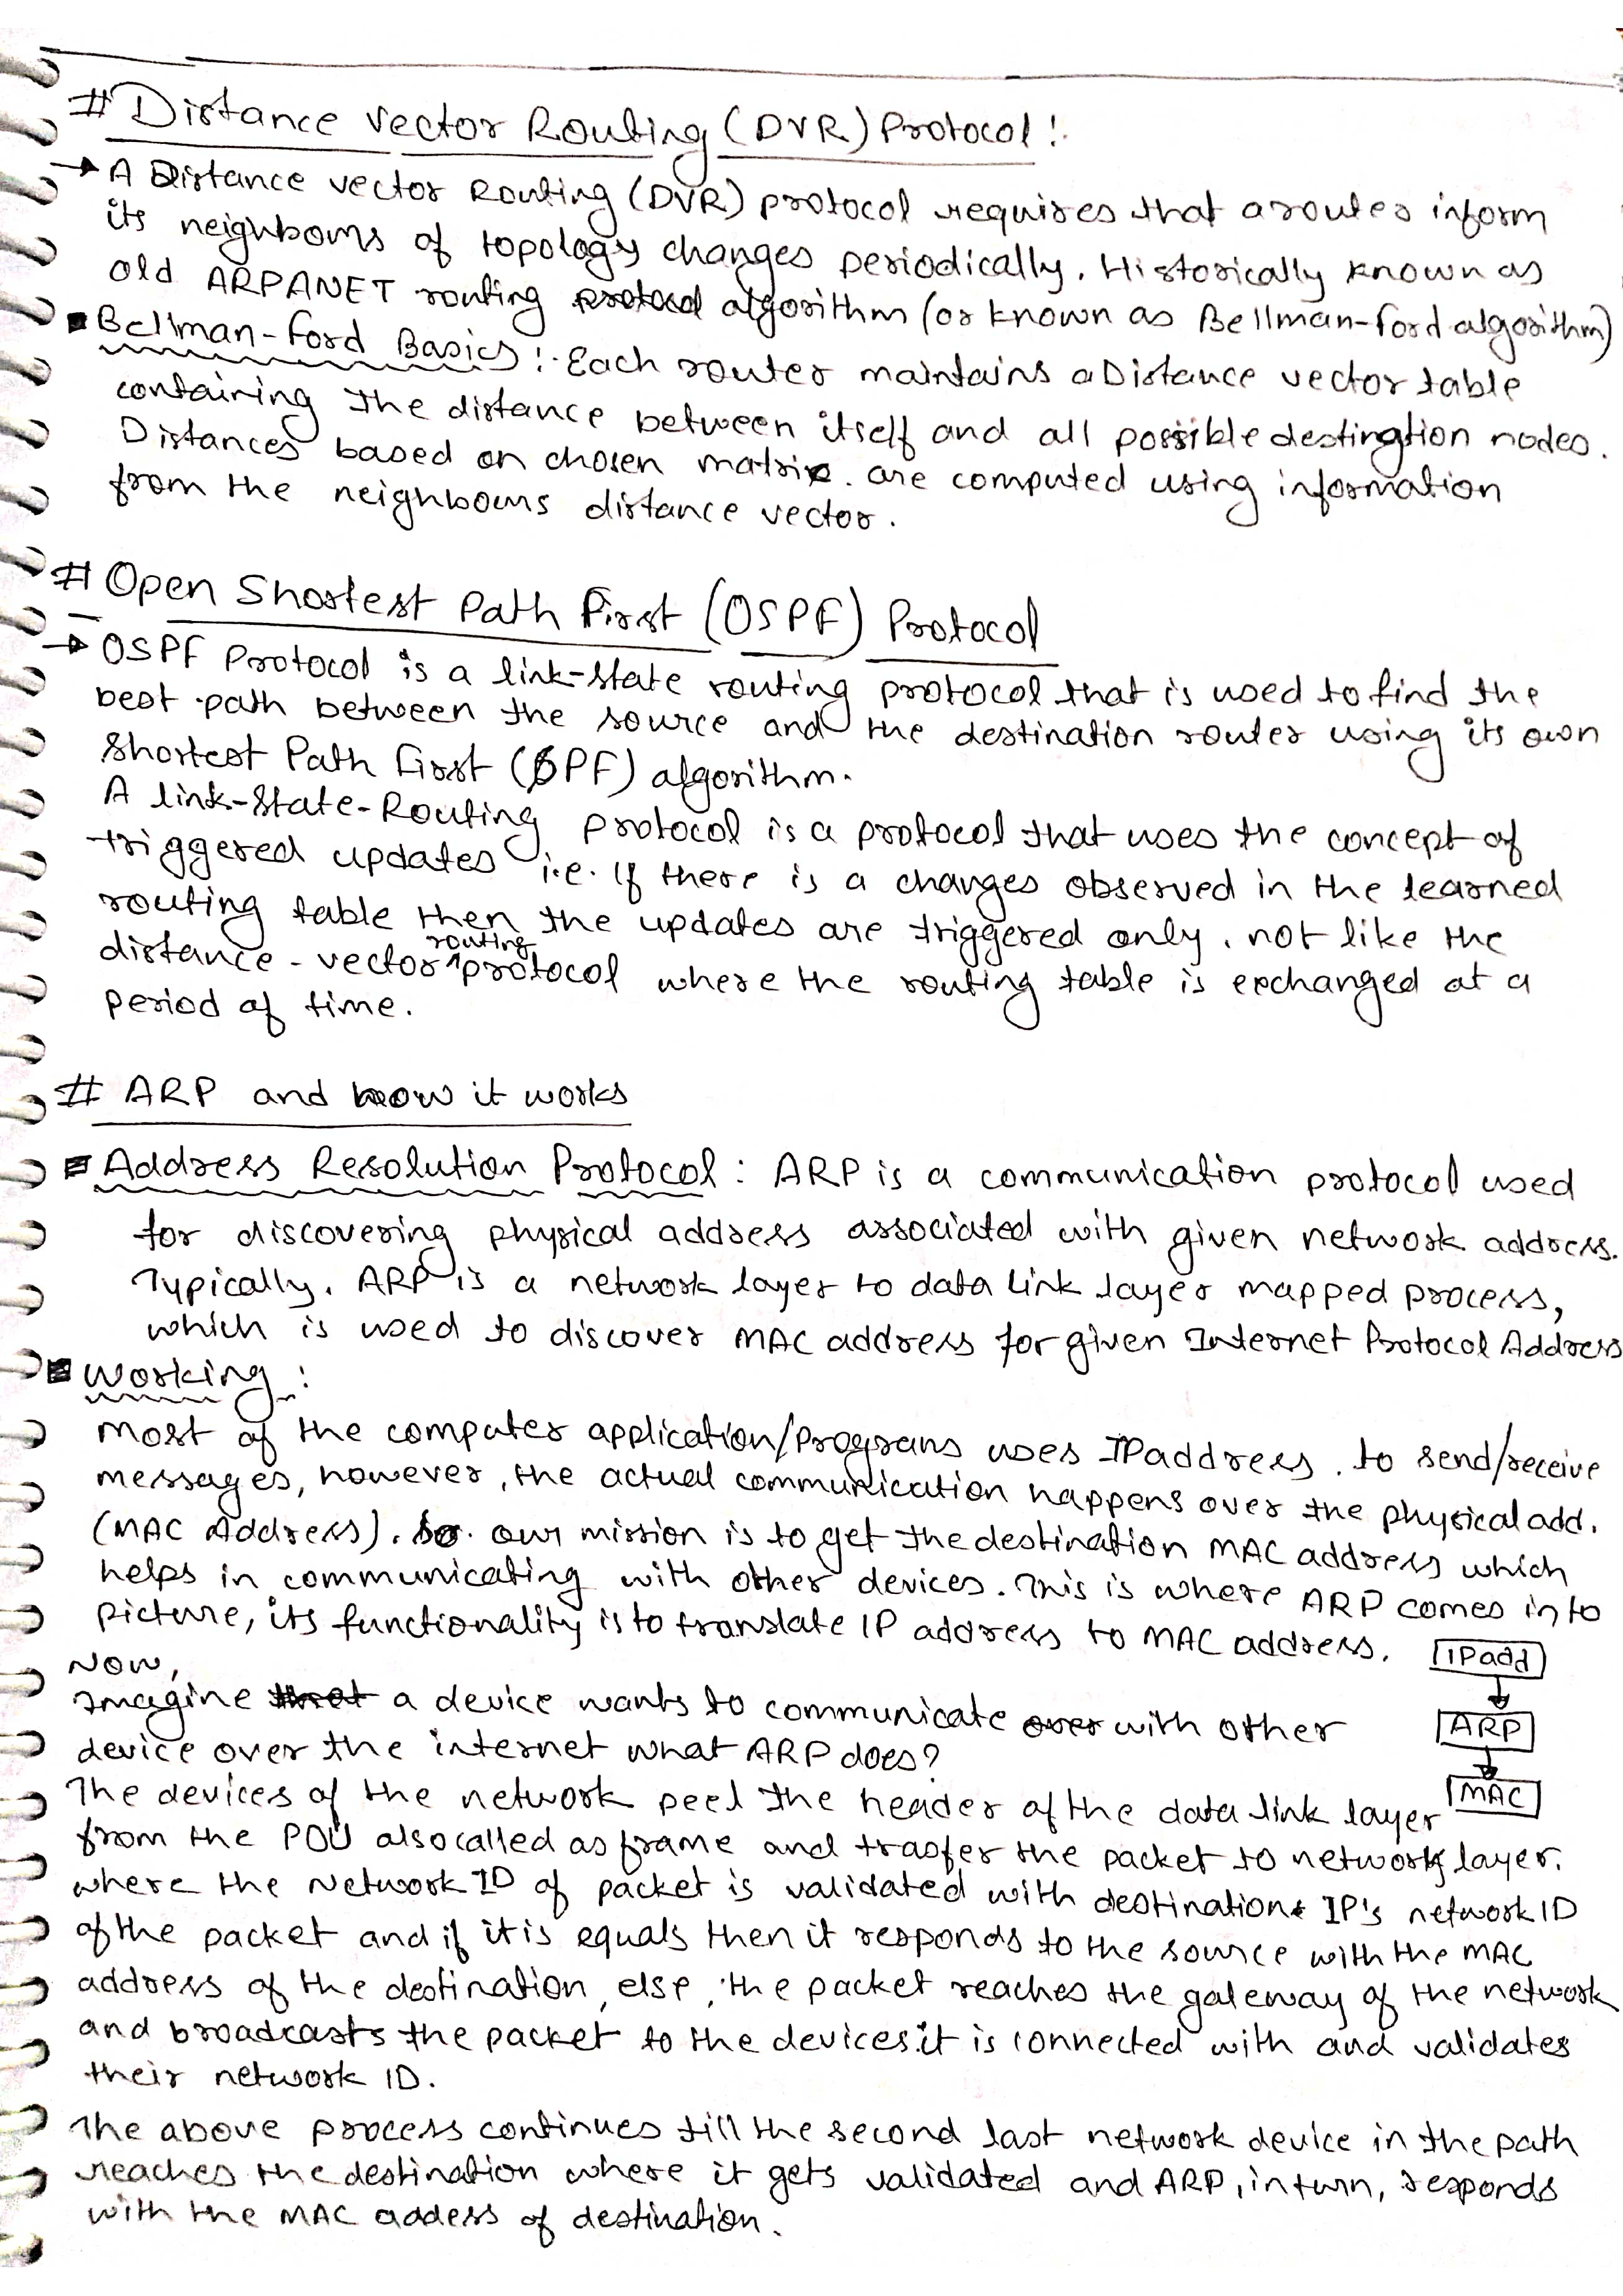 # Distance vector Routing (DVR) Protocol :
→ A Distance vector Routing (DVR) protocol requires that a router inform
its neighbours of topology changes periodically. Historically known as
old ARPANET routing algorithm (or known as Bellman-Ford algorithm)
Bellman-Ford Basics : Each router maintains a Distance vector table
containing the distance between itself and all possible destination nodes.
Distances based on chosen matrix. are computed using information
from the neighbours distance vector.
# Open Shortest Path First (OSPF) Protocol
→ OSPF Protocol is a link-state routing protocol that is used to find the
best path between the source and the destination router using its own
Shortest Path First (SPF) algorithm.
A link-State-Routing protocol is a protocol that uses the concept of
triggered updates i.e. If there is a changes observed in the learned
routing table then the updates are triggered only. not like the
distance-vector routing protocol where the routing table is exchanged at a
period of time.
# ARP and how it works
Address Resolution Protocol : ARP is a communication protocol used
for discovering physical address associated with given network address.
Typically, ARP is a network layer to data link layer mapped process,
which is used to discover MAC address for given Internet Protocol Address
Working :
most of the computer application/programs uses IP address. to send/receive
messages, however, the actual communication happens over the physical add.
(MAC Address). So. our mission is to get the destination MAC address which
helps in communicating with other devices. This is where ARP comes into
picture, its functionality is to translate IP address to MAC address.
IP add
Now,
Imagine a device wants to communicate with other
ARP
device over the internet what ARP does?
MAC
The devices of the network peel the header of the data link layer
from the PDU also called as frame and trasfer the packet to network layer.
where the Network ID of packet is validated with destination IP's network ID
of the packet and if it is equals then it responds to the source with the MAC
address of the destination, else, the packet reaches the gateway of the network
and broadcasts the packet to the devices it is connected with and validates
their network ID.
The above process continues till the second last network device in the path
reaches the destination where it gets validated and ARP, in turn, responds
with the MAC addess of destination.